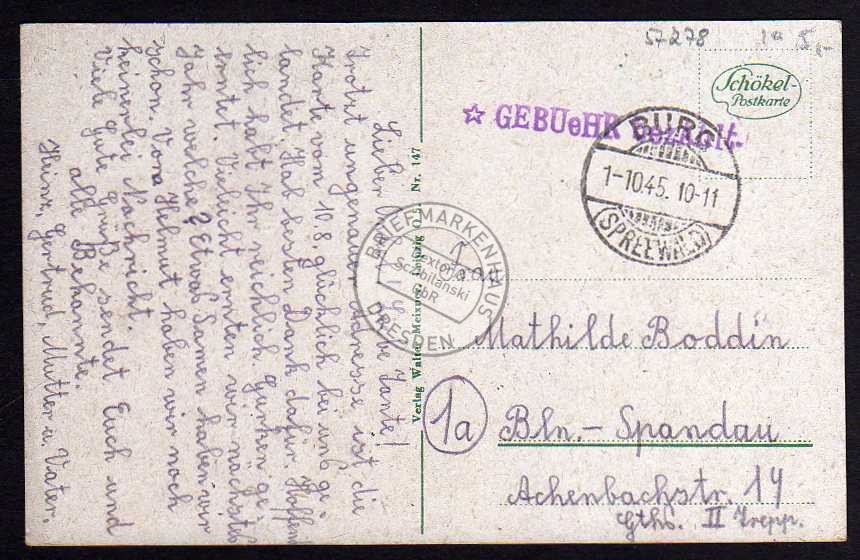 57278 1a 5,-
Schökel-
Postkarte
☆ GEBUeHR bezahlt.
BURG
1-10.45. 10-11
(SPREEWALD)
Lieber Liebe Tante!
Trotzt ungenauer Adresse ist die
Karte vom 10.8. glücklich bei uns ge-
landet. Hab besten Dank dafür. Hoffent
lich habt Ihr reichlich Gurken ge-
erntet. Vieleicht ernten wir nächstes
Jahr welche? Etwas Samen haben wir
schon. Von Helmut haben wir noch
keinerlei Nachricht.
Viele gute Grüße sendet Euch und
alle Bekannte.
Heinz, Gertrud, Mutter u. Vater.
Verlag Walter Meixner, Leipzig Nr. 147
BRIEFMARKENHAUS
Sextona
Scibilanski
GbR
DRESDEN
Mathilde Boddin
1a
Bln.- Spandau
Achenbachstr. 14
Gths. II Trepp.